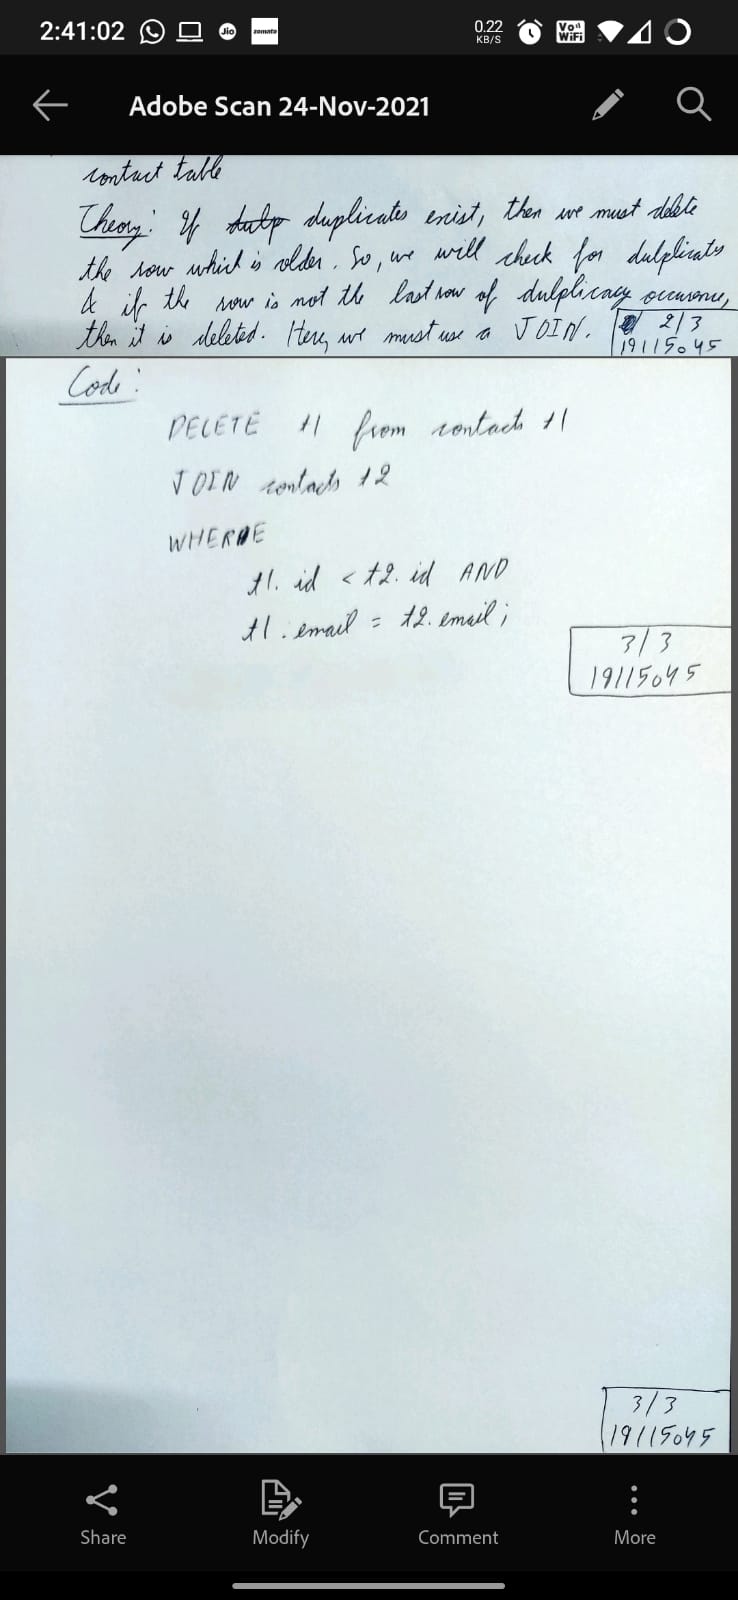 2:41:02 Jio zomato 0.22 KB/S Vo)) WiFi
Adobe Scan 24-Nov-2021
contact table
Theory: If dulp duplicates exist, then we must delete
the row which is older. So, we will check for dulplicates
& if the row is not the last row of dulplicacy occurence,
then it is deleted. Here, we must use a JOIN.
2/3
19115045
Code:
DELETE t1 from contacts t1
JOIN contacts t2
WHERE
t1.id < t2.id AND
t1.email = t2.email;
3/3
19115045
3/3
19115045
Share Modify Comment More